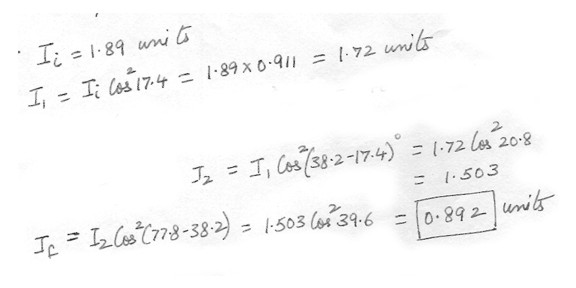 . Iᵢ = 1.89 units
I₁ = Iᵢ Cos²17.4 = 1.89 x 0.911 = 1.72 units
I₂ = I₁ Cos²(38.2-17.4)° = 1.72 Cos²20.8
= 1.503
I_f = I₂ Cos²(77.8-38.2) = 1.503 Cos²39.6 = 0.892 units